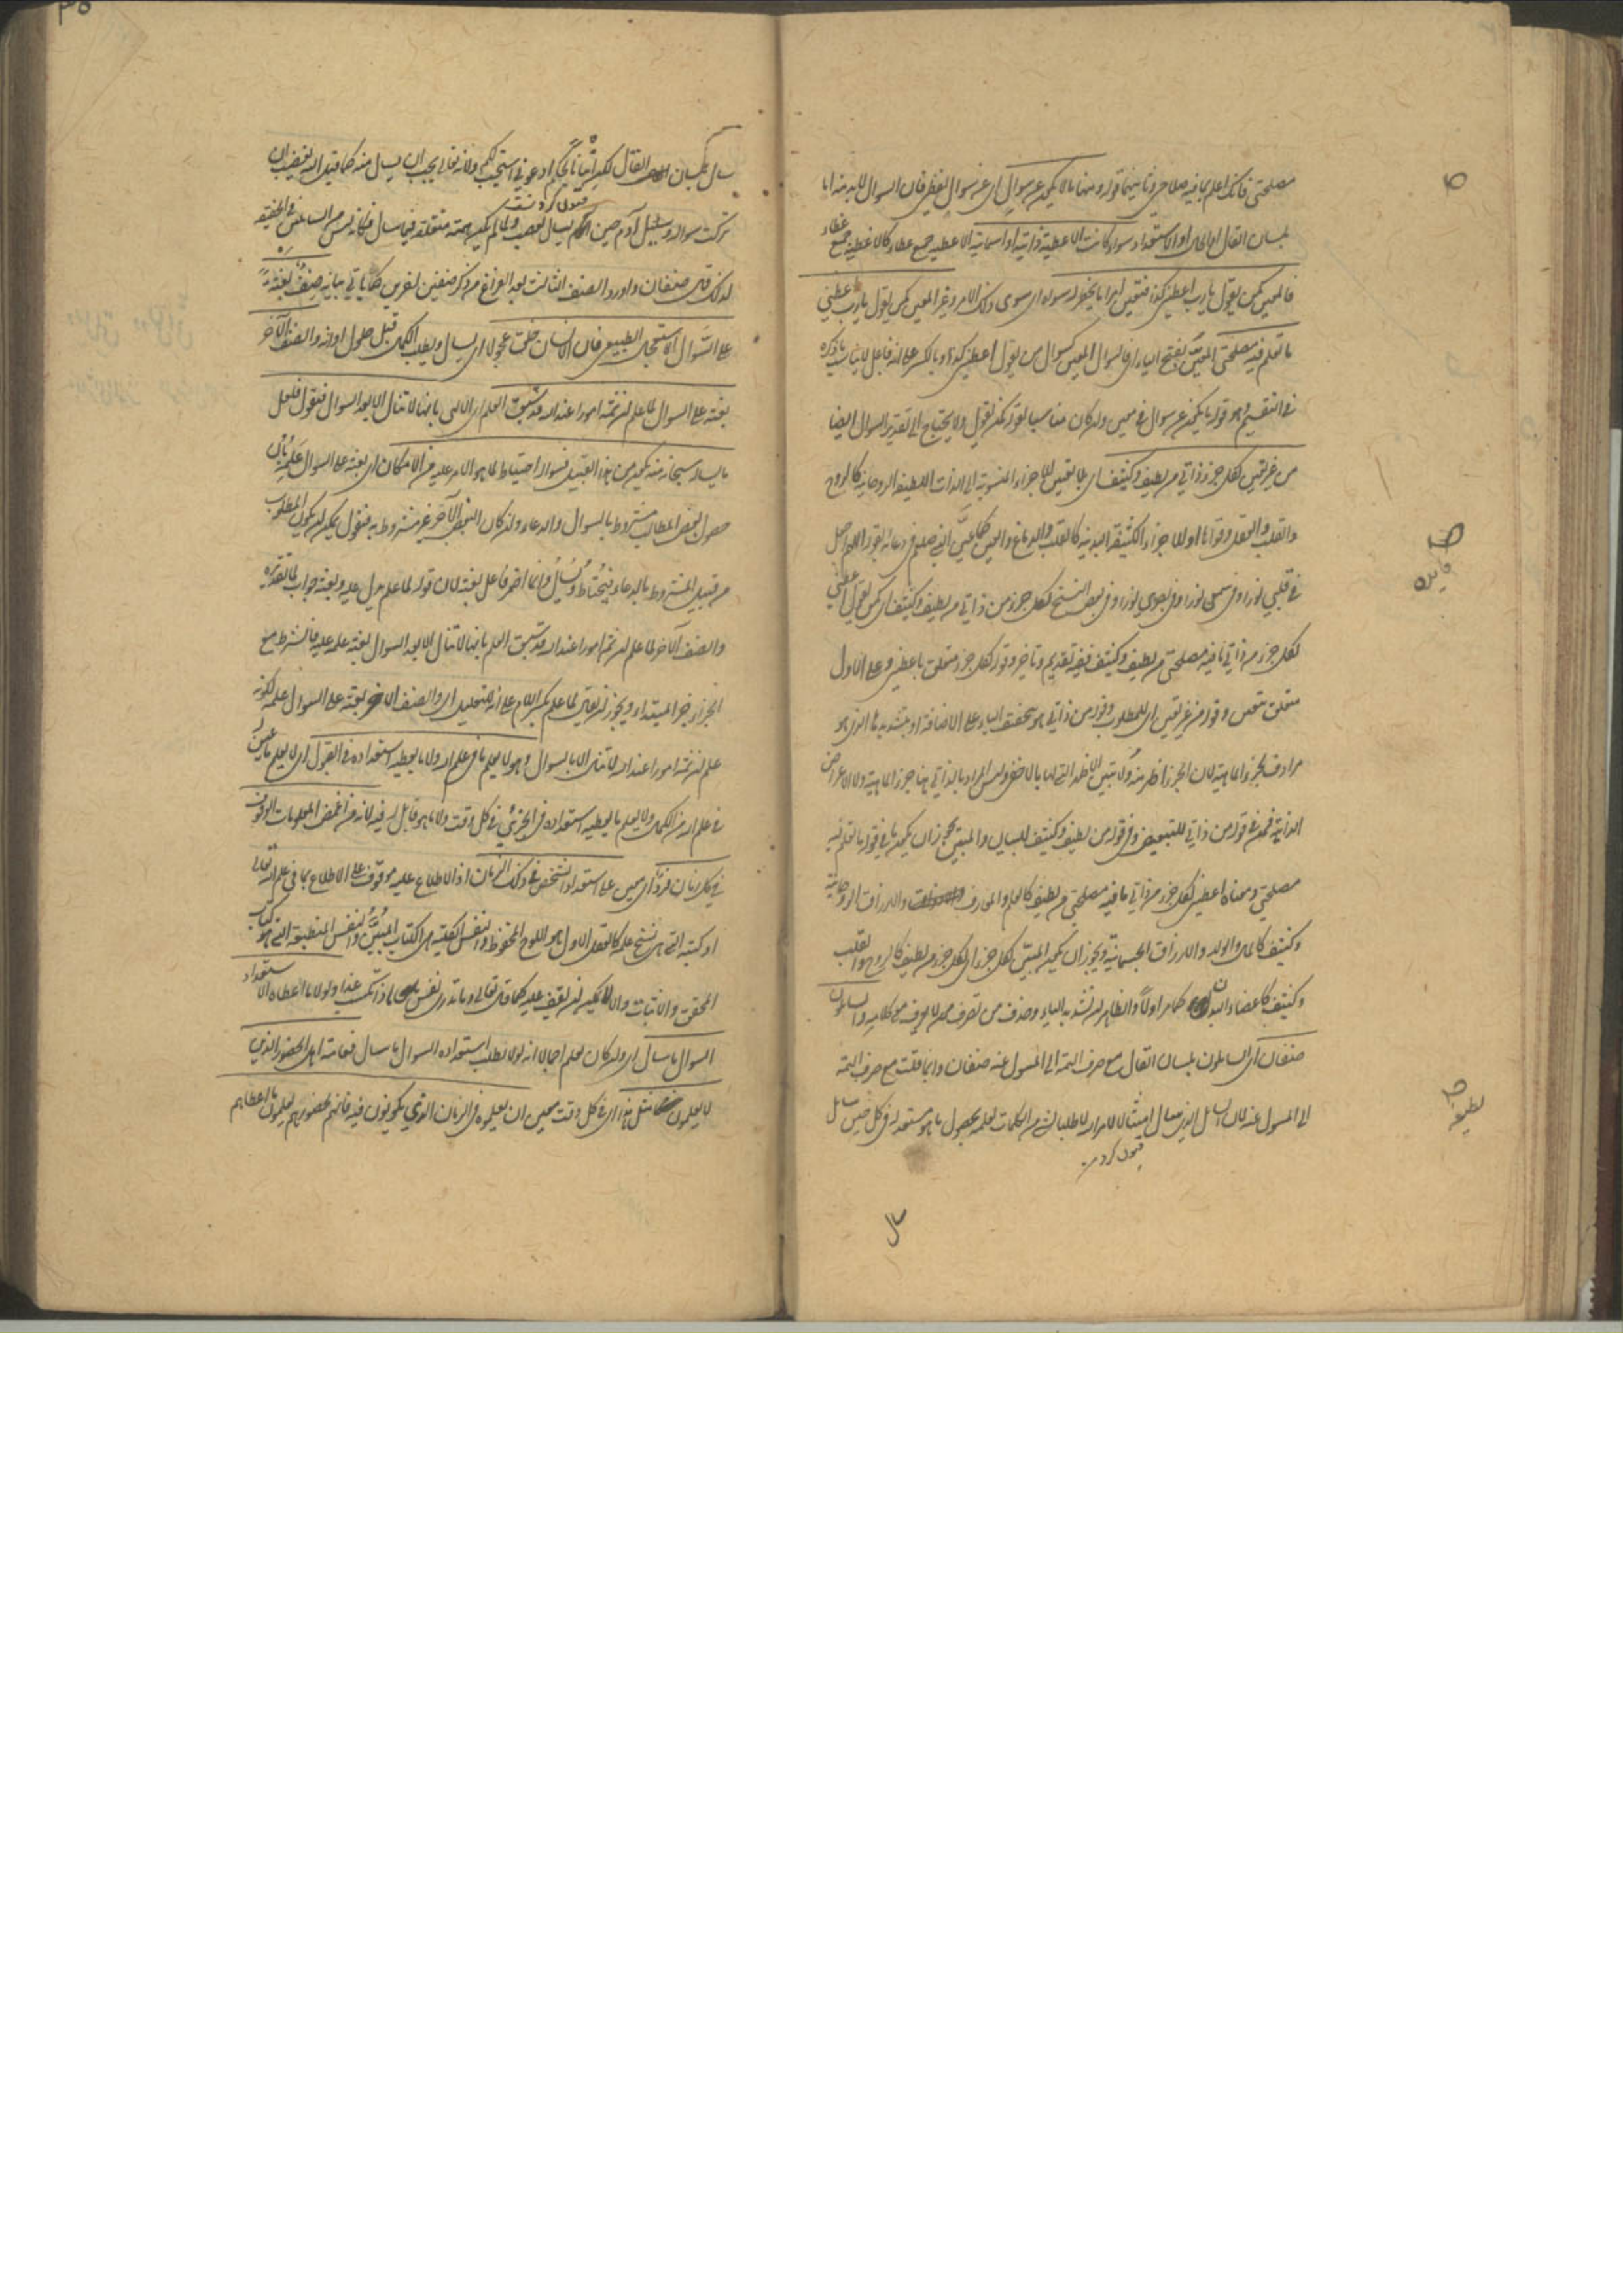 مصلحتي فانك اعلم بما فيه صلاحي وثانيهما قوله ومنها ما لا يكون عن سوال اي عن سوال لفظي فان السوال لا بد منه اما
بلسان القال او الحال او الاستعداد سواء كانت الاعطية ذاتية او اسمائية الاعطية جمع عطاء كالاغطية جمع غطاء
فالمعين كمن يقول يا رب اعطني كذا فتعين امرا ما لا يخطر له سواه اي سوى ذلك الامر وغير المعين كمن يقول يا رب اعطني
ما تعلم فيه مصلحتي المعين بفتح الياء اي فالسوال المعين كسوال من يقول اعطني كذا وبالكسر على انه فاعل لا يناسب ما ذكره
في التقسيم وهو قوله ما يكون عن سوال في معين وان كان مناسبا لقوله كمن يقول ولا يحتاج الى تقدير السوال ايضا
من غير تعيين لكل جزء ذاتي من لطيف وكثيف اي بلا تعيين للاجزاء المنسوبة الى الذات اللطيفة الروحانية كالروح
والقلب والعقل وقواها او للاجزاء الكثيفة البدنية كالقلب والدماغ والعين كما عين النبي صلعم في دعائه بقوله اللهم اجعل
في قلبي نورا وفي سمعي نورا وفي بصري نورا وفي بعض النسخ لكل جزء من ذاتي من لطيف وكثيف اي كمن يقول اعطني
لكل جزء من ذاتي ما فيه مصلحتي من لطيف وكثيف ففيه تقديم وتاخير وقوله لكل جزء متعلق باعطني وعلى الاول
متعلق بتعيين وقوله من غير تعيين اي للمطلوب وقوله من ذاتي هو بتخفيف الياء على الاضافة او بتشديدها الذي هو
مرادف لجزء الماهية لان الجزء اظهر منه ولا يتبين الاظهر بالاخفى وليس المراد بالذاتي هنا جزء الماهية ولا الاعراض
الذاتية فمن في قوله من ذاتي للتبعيض وفي قوله من لطيف وكثيف للبيان والمبين يجوز ان يكون ما في قوله ما تعلم فيه
مصلحتي ومعناه اعطني لكل جزء من ذاتي ما فيه مصلحتي من لطيف كالعلم والمعارف والارزاق الروحانية
وكثيف كالمال والولد والارزاق الجسمانية ويجوز ان يكون المبين لكل جزء اي لكل جزء من لطيف كالروح والقلب
وكثيف كاعضاء البدن كما مر اولا والظاهر انه تشديد الياء وحذف من تصرف ممن لا يعرف معنى كلامه والسايلون
صنفان اي السايلون بلسان القال مع صرف الهمة الى المسول عنه صنفان وانما قلت مع صرف الهمة
الى المسول عنه لان السايل الذي يسال امتثالا لامر الله لا طلبا لشيء من الكمالات لعلمه بحصول ما هو مستعد له في كل حين سايل
قبول كردن
سال
فايده
لطيفه
سال بلسان القال لكن اتيانا لحكم ادعوني استجب لكم ولانه تعالى يحب ان يسال منه كما قيل الله يغضب ان
تركت سواله وبني آدم حين يسال يغضب ولما لم يكن همته متعلقة فيما سال فكانه ليس من السائلين في الحقيقة
لذلك قال صنفان واورد الصنف الثالث بعد الفراغ من ذكر صنفين لغرض كما ياتي بيانه صنف بعثه
على السوال الاستعجال الطبيعي فان الانسان خلق عجولا اي يسال ويطلب الكمال قبل حلول اوانه والصنف الآخر
بعثه على السوال لما علم ان ثمة امورا عند الله قد سبق العلم اي الالهي بانها لا تنال الا بعد السوال فنقول فلعل
ما يساله سبحانه منه يكون من هذا القبيل فسواله احتياط لما هو الامر عليه من الامكان اي بعثه على السوال علمه بان
حصول بعض المطالب مشروط بالسوال والدعاء وان كان البعض الآخر غير مشروط به فنقول يمكن ان يكون المطلوب
من قبيل المشروط بالدعاء فيحتاط ويسال وانما اضمر فاعل بعثه لان قوله لما علم يدل عليه وبعثه جواب لما تقديره
والصنف الآخر لما علم ان ثمة امورا عند الله قد سبق العلم بانها لا تنال الا بعد السوال بعثه علمه عليه فالشرط مع
الجزاء خبر المبتداء ويجوز ان يقال لما علم بكسر اللام على انه للتعليل اي والصنف الآخر بعثه على السوال علمه لكونه
علم ان ثمة امورا عند الله لا تنال الا بالسوال وهو لا يعلم ما في علم الله ولا ما يعطيه استعداده في القبول اي لا يعلم ما يعين له
في علم الله من الكمال ولا يعلم ما يعطيه استعداده الجزئي في كل وقت ولا ما هو قابل له فيه لانه من اغمض المعلومات الوقوف
في كل زمان فرد اي معين على استعداد الشخص في ذلك الزمان اذ الاطلاع عليه موقوف على الاطلاع بما في علم الله تعالى
او كتبه التي هي نسخ علمه كالعقل الاول هو اللوح المحفوظ والنفس الكلية هي الكتاب المبين والنفس المنطبعة التي هو كتاب
المحو والاثبات والا لا يمكن ان يقف عليه كما قال تعالى وما تدري نفس ماذا تكسب غدا ولولا ما اعطاه الاستعداد
السوال ما سال اي وان كان يعلم اجمالا انه لولا تطلب استعداده السوال ما سال فغاية اهل الحضور الذين
لا يعلمون مثل هذا اي في كل وقت معين ان يعلموه في الزمان الذي يكونون فيه فانهم لحضورهم يعلمون ما اعطاهم